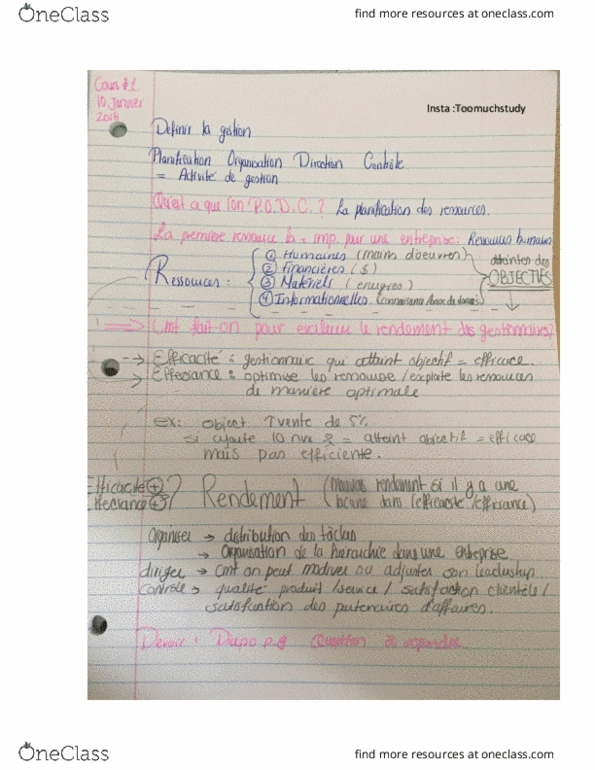 OneClass
find more resources at oneclass.com
Cours #1
10 Janvier
2018
Insta :Toomuchstudy
Définir la gestion
Planification Organisation Direction Contrôle
= Activité de gestion
Qu'est ce que l'on P.O.D.C.? La planification des ressources.
La première ressource la + imp. pour une entreprise: Ressources humaines
Ressources:
① Humaines (mains d'œuvres)
② Financières ($)
③ Matériels
④ Informationnelles
atteintes des
OBJECTIFS
Cmt fait-on pour evaluer le rendement des gestionnaires?
→ Efficacité: gestionnaire qui attient objectif = efficace.
→ optimise les ressource / exploite les ressources
de manière optimale
ex: object ↑vente de 5%
si ajoute 10 = atteint objectif = efficace
mais pas efficiente.
Efficacité ⊕
Rendement (mauvais rendement si il y a une
lacune dans l'efficacité /efficience)
organiser → distribution des tâches
→ Organisation de la hiérarchie dans une entreprise
diriger → cmt on peut motiver ou adjuster son leadership
contrôle → qualité produit /service / satisfaction clientèle /
satisfaction des partenaires d'affaires.
Devoir: Diapo p.9 Question à
OneClass
find more resources at oneclass.com